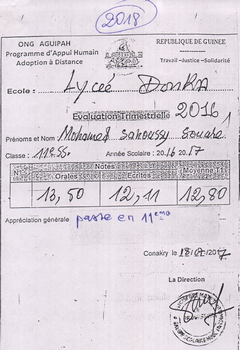 2018
ONG AGUIPAH
Programme d'Appui Humain
Adoption à Distance
REPUBLIQUE DE GUINEE
Travail -Justice -Solidarité
Ecole : Lyceé DonKA
Evaluation Trimestrielle 2016
Prénoms et Nom : Mohamed Sakoussy Souaré
Classe : 11e SS. Année Scolaire : 2016 2017
N° Notes Moyenne T1
Orales Ecrites
13,50 12,11 12,80
Appréciation générale passe en 11eme
Conakry le 18/07/2017
La Direction